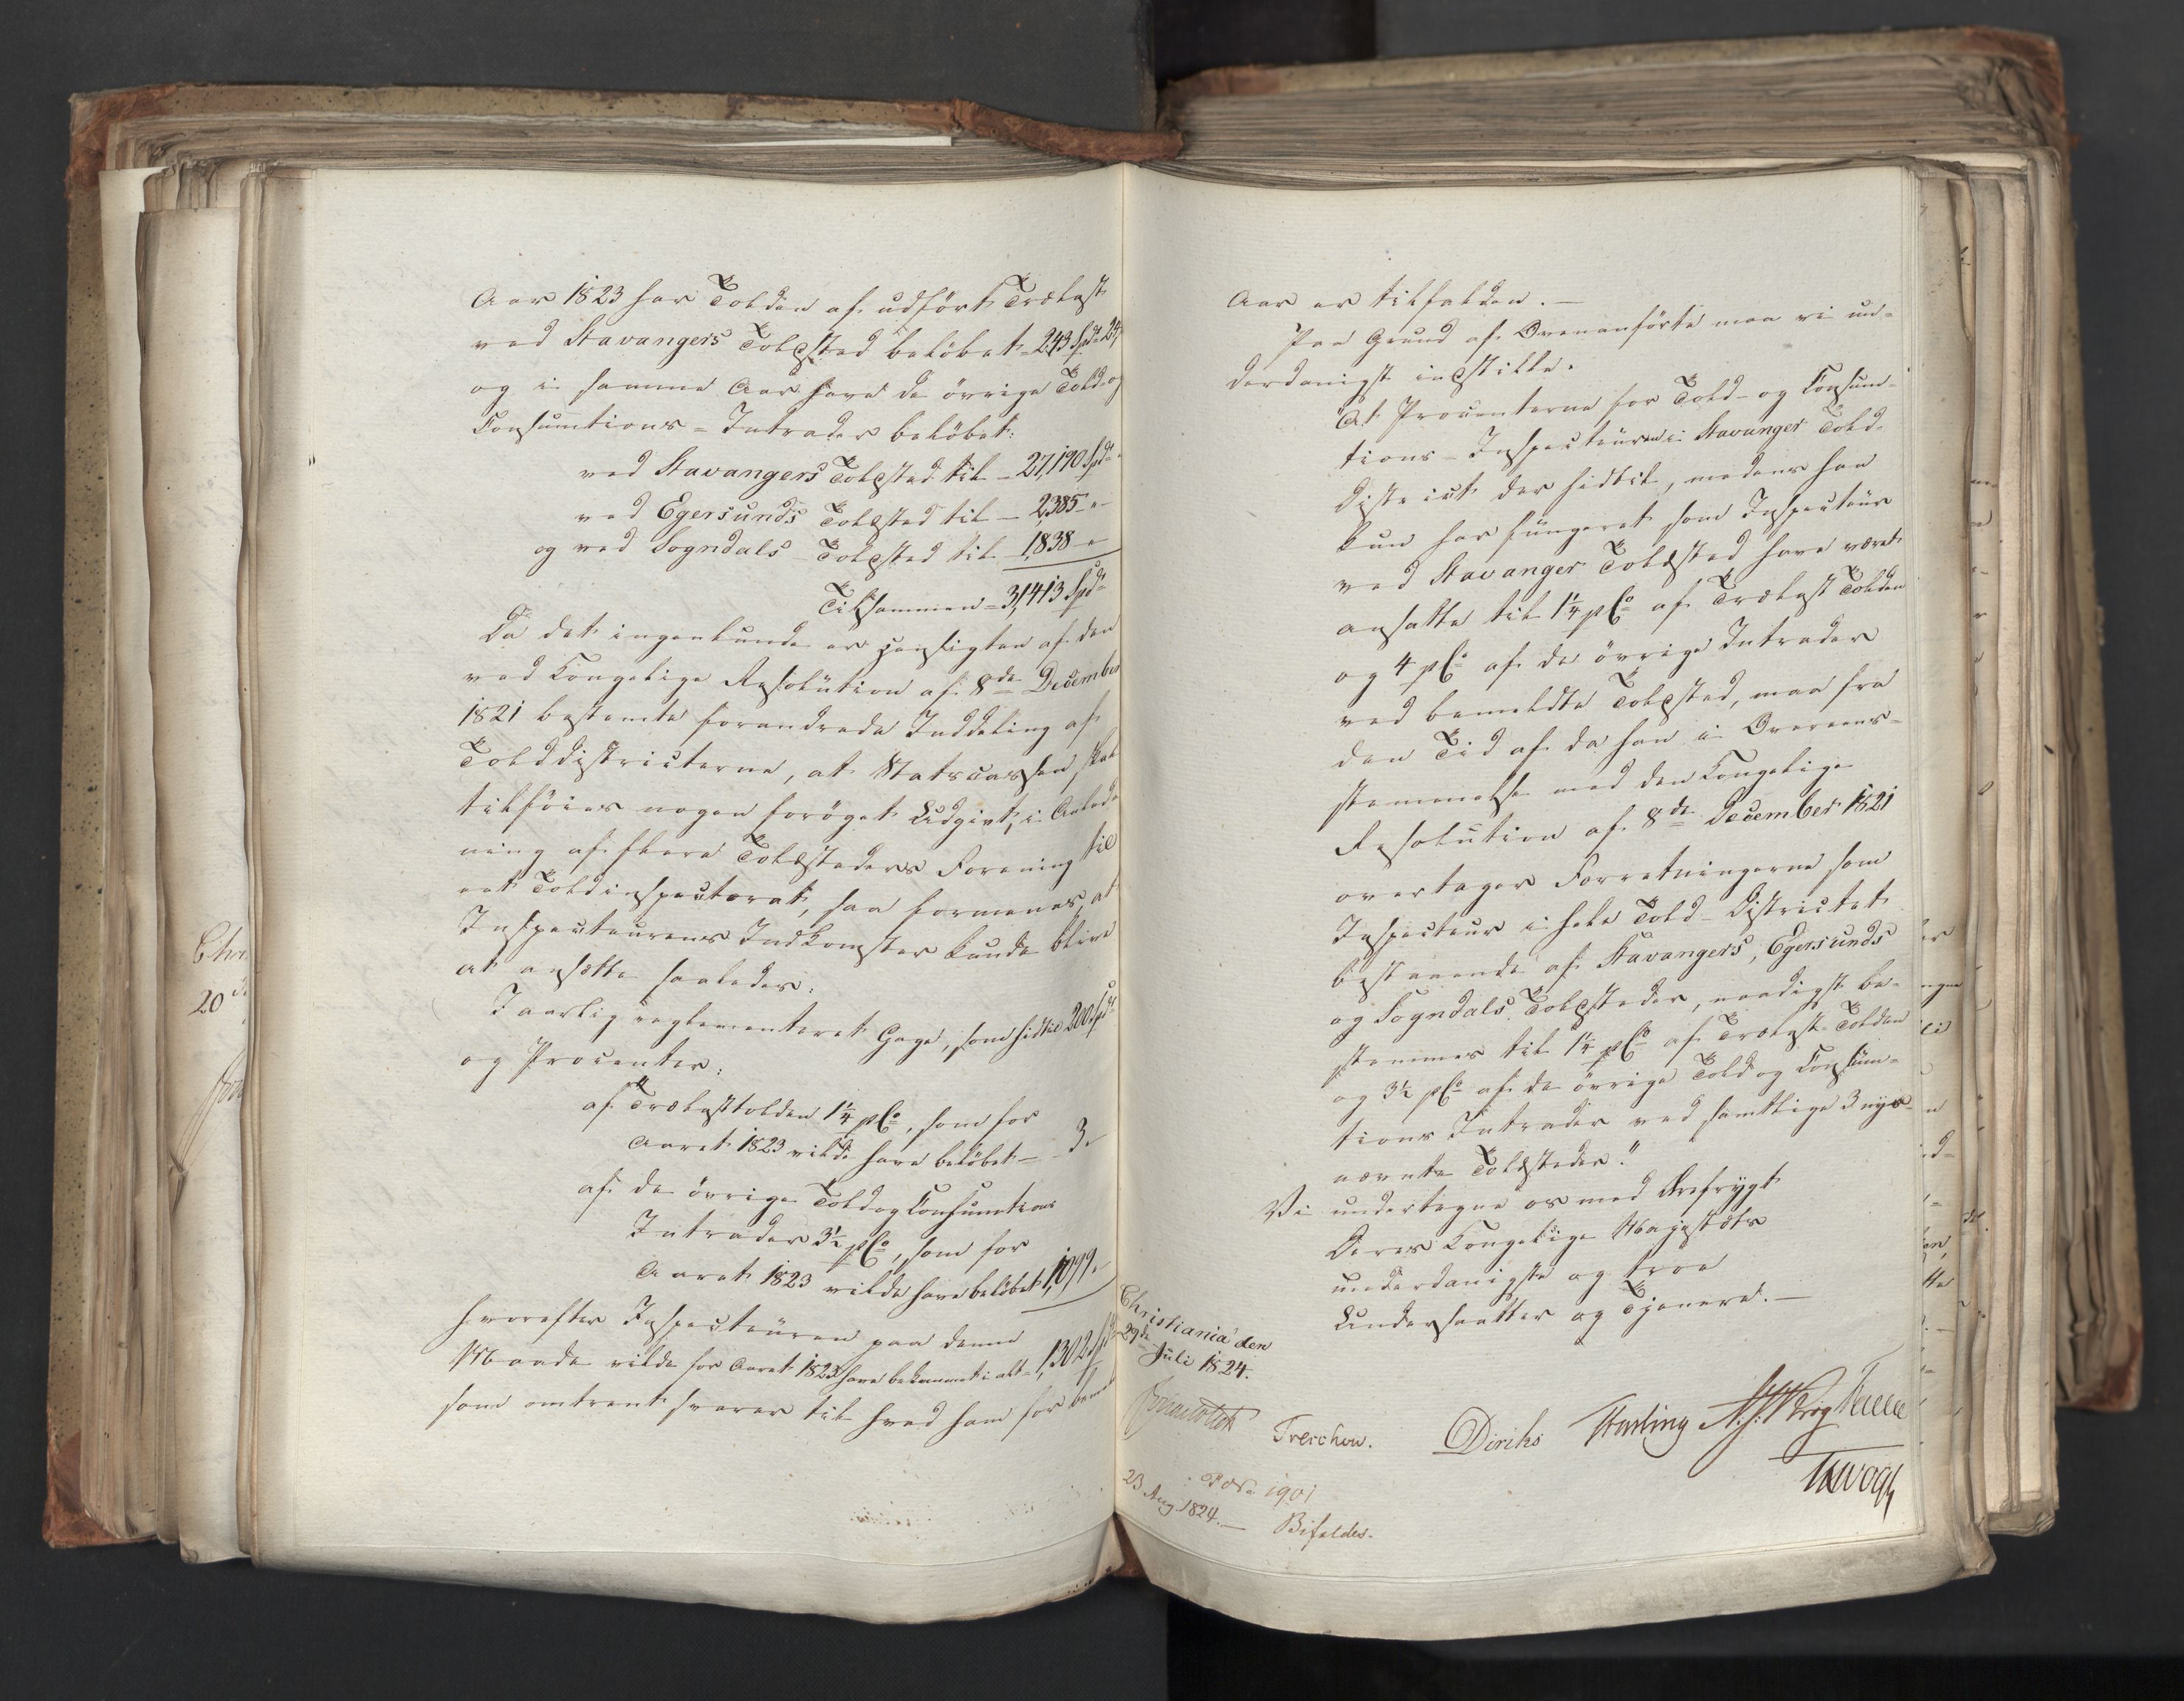 Aar 1823 har Tolden af udført Trælast
ved Stavangers Toldsted beløbet = 243 Spd 24
og i samme Aar have de øvrige Told- og
Consumtions-Intrader beløbet:
ved Stavangers Toldsted til - 27,190 Spd
ved Egersunds Toldsted til - 2,385 "
og ved Sogndals Toldsted til 1,838 "
Tilsammen = 31,413 Spd
Da det ingenlunde er Hensigten af den
ved Kongelige Resolution af 8de December
1821 bestemte forandrede Inddeling af
Tolddistricterne, at Statscassen skal
tilføies nogen forøget Udgivt, i Anled-
ning af flere Toldsteders Forening til
eet Toldinspectorat, saa formenes, at
Inspecteurens Indkomster kunde blive
at ansætte saaledes:
I aarlig reglementeret Gage, som hidtil 200 Spd
og Procenter:
af Trælasttolden 1¼ pCo, som for
Aaret 1823 vilde have beløbet - 3 "
af de øvrige Told og Consumtions
Intrader 3½ pCo, som for
Aaret 1823 vilde have beløbet 1,099 "
hvorefter Inspecteuren paa denne
Maade vilde for Aaret 1823 have bekommet i alt - 1,302 Spd
som omtrent svarer til hvad ham for
Chr
20
Aar er tilfalden. —
Paa Grund af Ovenanførte maa vi un-
derdanigst indstille:
"At Procenterne for Told- og Consum-
tions-Inspecteuren i Stavanger Told-
District der hidtil, medens han
kun har fungeret som Inspecteur
ved Stavanger Toldsted have været
ansatte til 1¼ pCo af Trælast Tolden
og 4 pCo af de øvrige Intrader
ved bemeldte Toldsted, maa fra
den Tid af da han i Overeens-
stemmelse med den Kongelige
Resolution af 8de December 1821
overtager Forretningerne som
Inspecteur i hele Told-Districtet
bestaaende af Stavangers, Egersunds
og Sogndals Toldsteder, naadigst be-
stemmes til 1¼ pCo af Trælast-Tolden
og 3½ pCo af de øvrige Told og Consum-
tions Intrader ved samtlige 3 nys-
nævnte Toldsteder."
Vi undertegne os med Ærefrygt
Deres Kongelige Majestæts
underdanigste og troe
Undersaatter og Tjenere. —
Christiania den
29de Juli 1824.
Treschow. Diriks
23 Aug 1824. — Bifaldes.